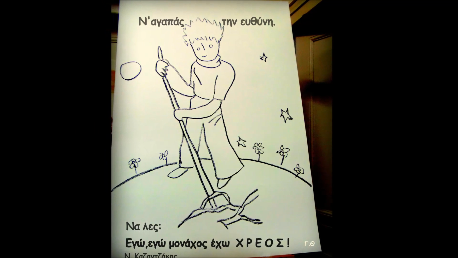 Ν΄αγαπάς την ευθύνη.
Να λες:
Εγώ,εγώ μονάχος έχω ΧΡΕΟΣ!
Γ.Θ
Ν. Καζαντζάκης